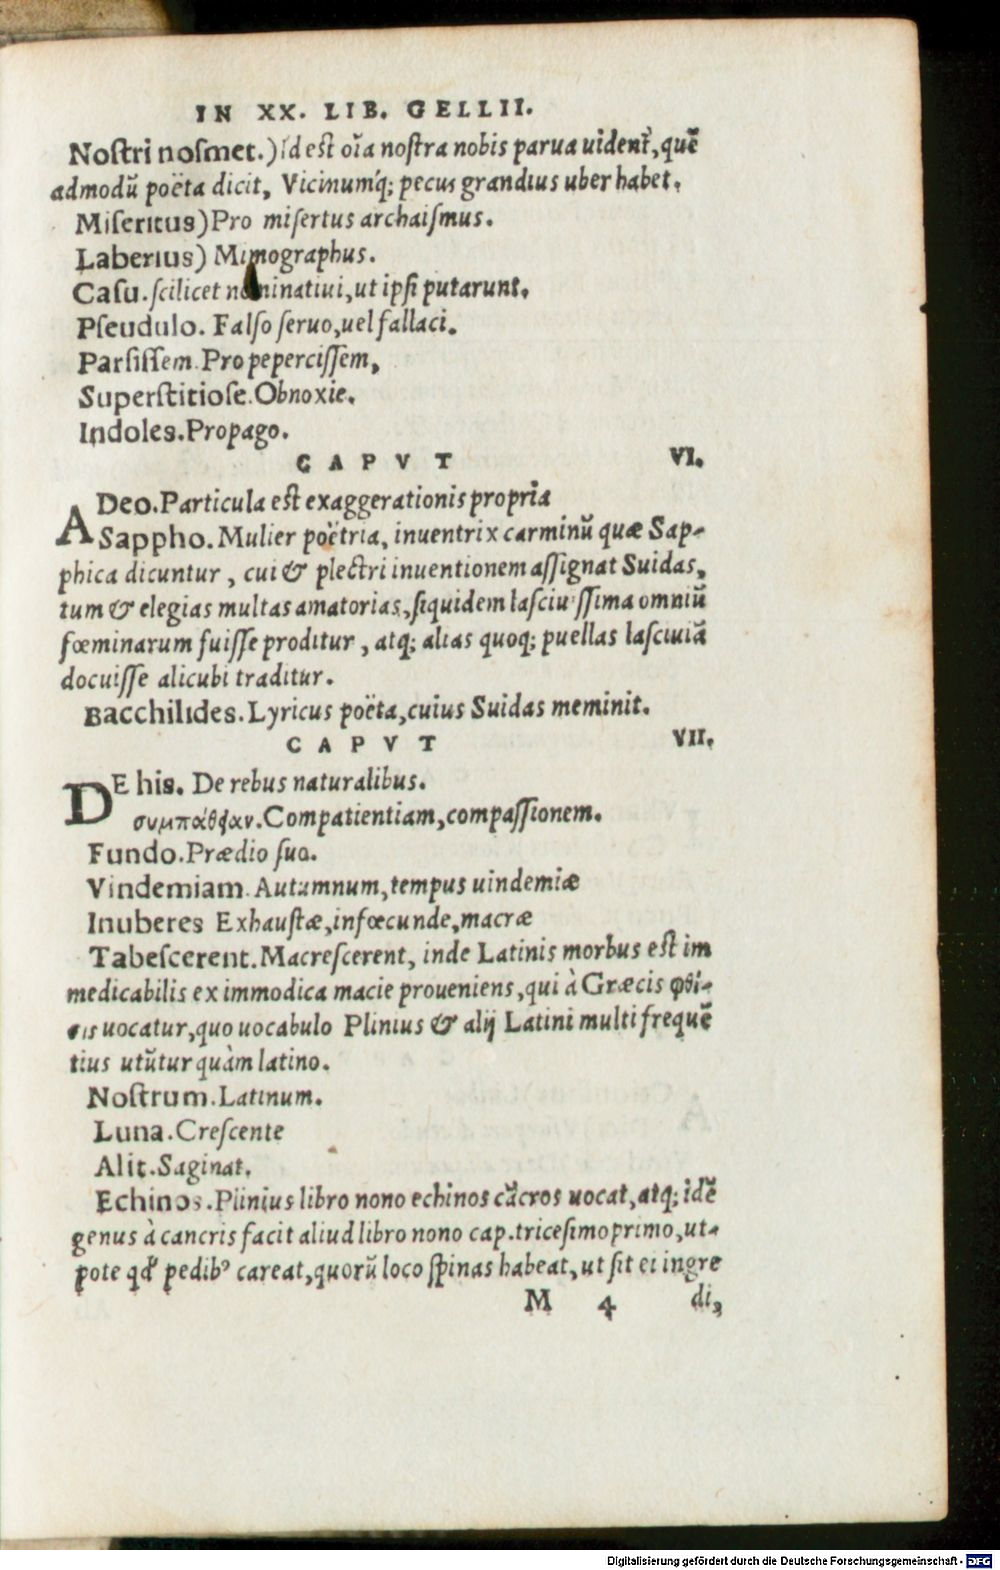 IN XX. LIB. GELLII.
Noſtri noſmet.) id eſt oĩa noſtra nobis parua uident̃, quẽ
admodũ poëta dicit, Vicinumq́; pecus grandius uber habet.
Miſeritus) Pro miſertus archaiſmus.
Laberius) Mimographus.
Caſu. ſcilicet nominatiui, ut ipſi putarunt.
Pſeudulo. Falſo ſeruo, uel fallaci.
Parſiſſem. Pro peperciſſem,
Superſtitioſe. Obnoxie.
Indoles. Propago.
CAPVT VI.
ADeo. Particula eſt exaggerationis propria
Sappho. Mulier poëtria, inuentrix carminũ quæ Sap-
phica dicuntur, cui & plectri inuentionem aſſignat Suidas,
tum & elegias multas amatorias, ſiquidem laſciuiſſima omniũ
fœminarum fuiſſe proditur, atq; alias quoq; puellas laſciuiã
docuiſſe alicubi traditur.
Bacchilides. Lyricus poëta, cuius Suidas meminit.
CAPVT VII.
DE his. De rebus naturalibus.
συμπάθειαν. Compatientiam, compaſſionem.
Fundo. Prædio ſuo.
Vindemiam. Autumnum, tempus uindemiæ
Inuberes Exhauſtæ, infœcunde, macræ
Tabeſcerent. Macreſcerent, inde Latinis morbus eſt im
medicabilis ex immodica macie proueniens, qui à Græcis φθί-
σις uocatur, quo uocabulo Plinius & alij Latini multi frequẽ
tius utũtur quàm latino.
Noſtrum. Latinum.
Luna. Creſcente
Alit. Saginat.
Echinos. Plinius libro nono echinos cãcros uocat, atq; idẽ
genus à cancris facit aliud libro nono cap. triceſimoprimo, ut-
pote qđ pedibꝰ careat, quorũ loco ſpinas habeat, ut ſit ei ingre
M 4 di,
Digitalisierung gefördert durch die Deutsche Forschungsgemeinschaft - DFG